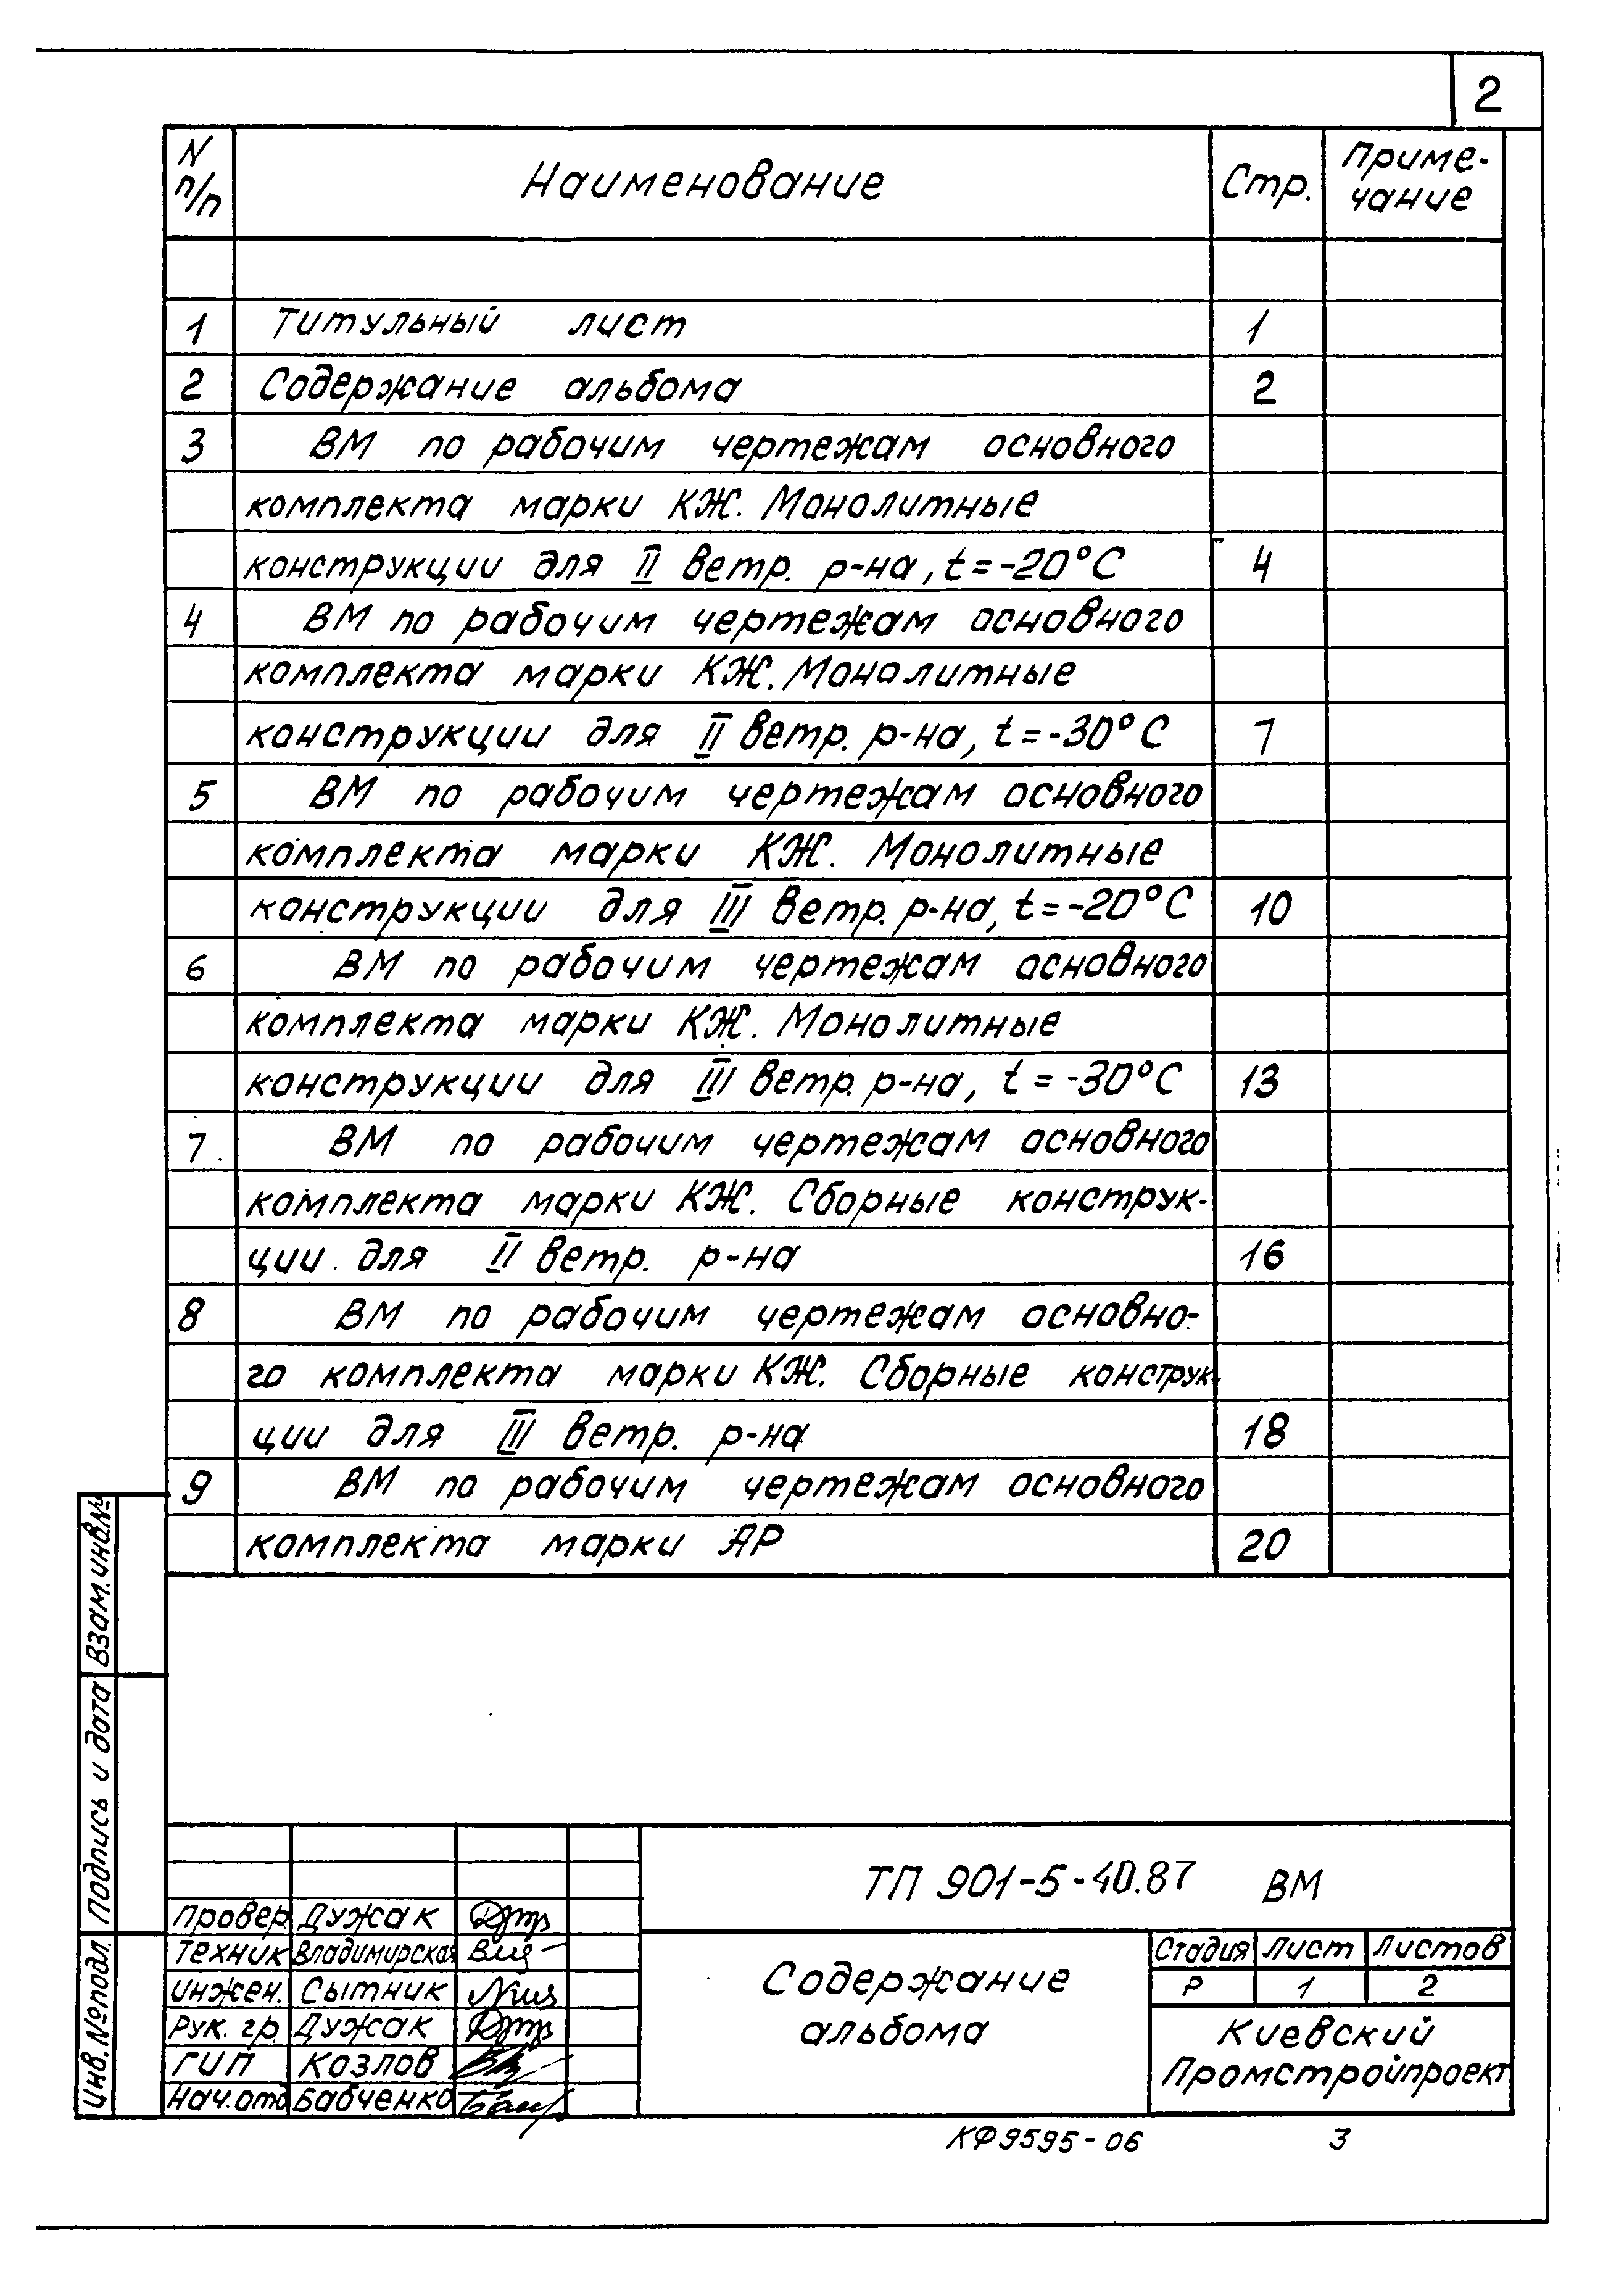 2
N п/п Наименование Стр. Приме-
чание
1 Титульный лист 1
2 Содержание альбома 2
3 ВМ по рабочим чертежам основного
комплекта марки КЖ. Монолитные
конструкции для II ветр. р-на, t=-20°С 4
4 ВМ по рабочим чертежам основного
комплекта марки КЖ. Монолитные
конструкции для II ветр. р-на, t=-30°С 7
5 ВМ по рабочим чертежам основного
комплекта марки КЖ. Монолитные
конструкции для III ветр. р-на, t=-20°С 10
6 ВМ по рабочим чертежам основного
комплекта марки КЖ. Монолитные
конструкции для III ветр. р-на, t=-30°С 13
7 ВМ по рабочим чертежам основного
комплекта марки КЖ. Сборные конструк-
ции для II ветр. р-на 16
8 ВМ по рабочим чертежам основно-
го комплекта марки КЖ. Сборные конструк-
ции для III ветр. р-на 18
9 ВМ по рабочим чертежам основного
комплекта марки АР 20
Взам. инв.№
Подпись и дата
Инв. № подл.
ТП 901-5-40.87 ВМ
Провер. Дужак
Техник Владимирская
Инжен. Сытник
Рук. гр. Дужак
ГИП Козлов
Нач. отд Бабченко
Содержание
альбома
Стадия Лист Листов
Р 1 2
Киевский
Промстройпроект
КФ 9595-06 3